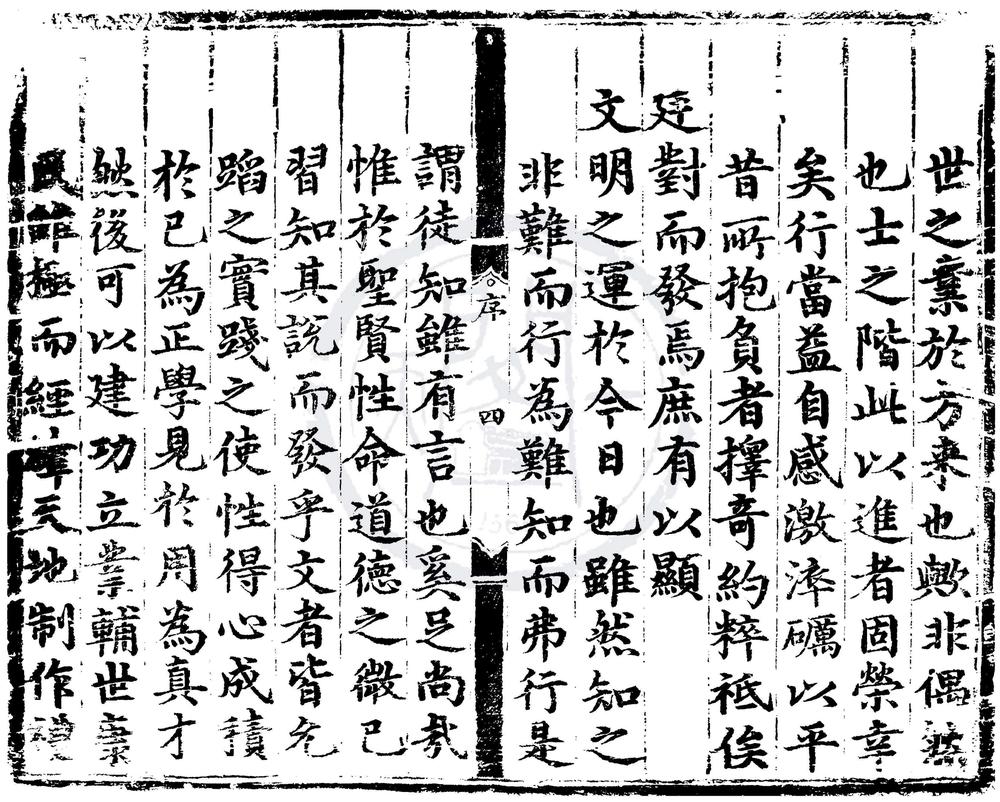 世之於方来也歟非偶然
也士之階此以進者固榮幸
矣行當益自感激淬礪以平
昔所抱負者擇奇約粹祗俟
廷對而發焉庶有以顯
文明之運於今日也雖然知之
非難而行為難知而弗行是
序 四
謂徒知雖有言也奚足尚哉
惟於聖賢性命道德之微已
習知其說而發乎文者皆允
蹈之實踐之使性得心成積
於已為正學見於用為真才
然後可以建功立業輔世康
民維極而經緯天地制作禮